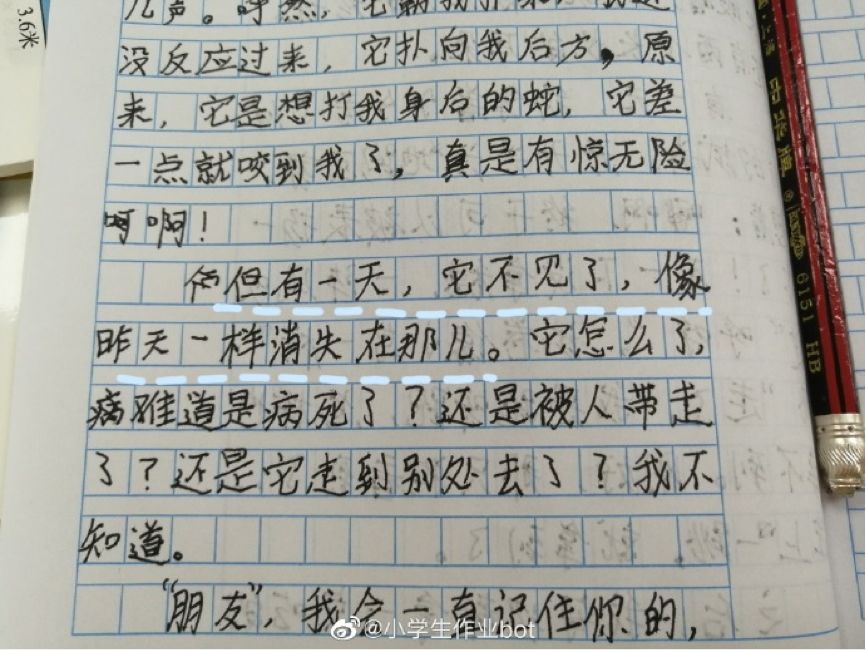 几声。
没反应过来，它扑向我后方，原
来，它是想打我身后的蛇，它差
一点就咬到我了，真是有惊无险
呵啊！
但有一天，它不见了，像
昨天一样消失在那儿。它怎么了，
难道是病死了？还是被人带走
了？还是它走到别处去了？我不
知道。
“朋友”，我会一直记住你的，
@小学生作业bot
3.6米
中华牌
6151 HB